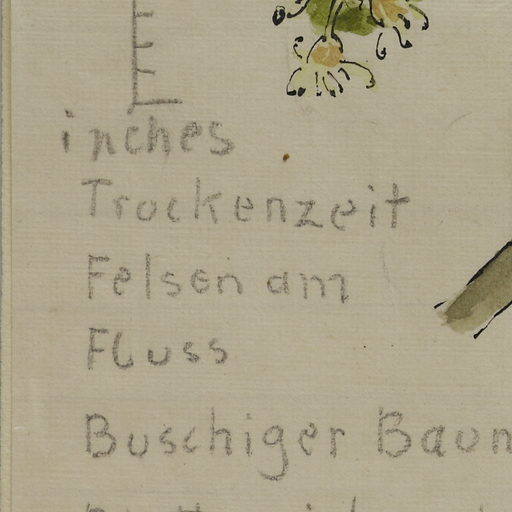 inches
Trockenzeit
Felsen am
Fluss
Buschiger